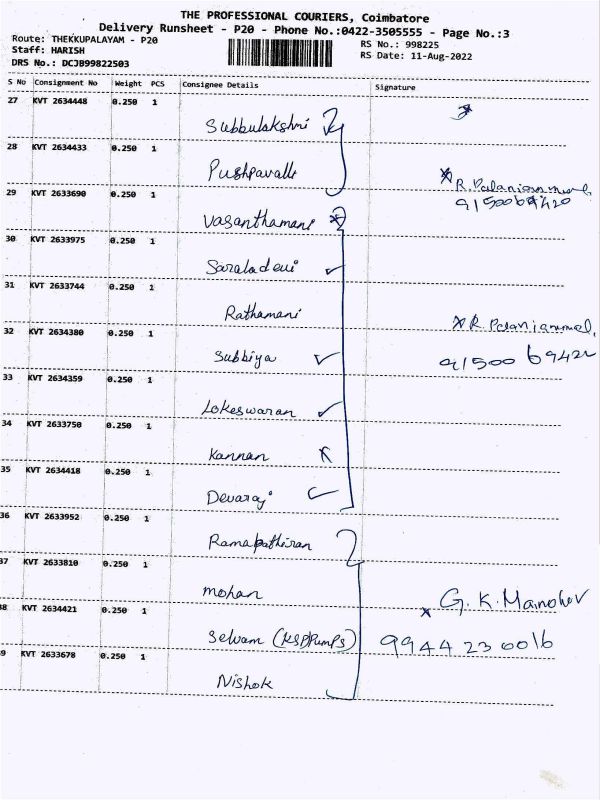 THE PROFESSIONAL COURIERS, Coimbatore
Delivery Runsheet - P20 - Phone No.:0422-3505555 - Page No.:3
Route: THEKKUPALAYAM - P20
RS No.: 998225
Staff: HARISH
RS Date: 11-Aug-2022
DRS No.: DCJB99822503
S No Consignment No Weight PCS Consignee Details Signature
27 KVT 2634448 0.250 1
Subbulakshmi
28 KVT 2634433 0.250 1
Pushpavalli
R. Palaniammal
29 KVT 2633690 0.250 1
Vasanthamani
30 KVT 2633975 0.250 1
Saraladevi
31 KVT 2633744 0.250 1
Rathamani
R. Palaniammal,
32 KVT 2634380 0.250 1
Subbiya
91500 69422
33 KVT 2634359 0.250 1
Lokeswaran
34 KVT 2633750 0.250 1
Kannan
35 KVT 2634418 0.250 1
Devaraj
36 KVT 2633952 0.250 1
Ramapathiran
37 KVT 2633810 0.250 1
mohan
G. K. Manohar
38 KVT 2634421 0.250 1
Selvam (KSP Pumps)
99442 30016
39 KVT 2633678 0.250 1
Nishok